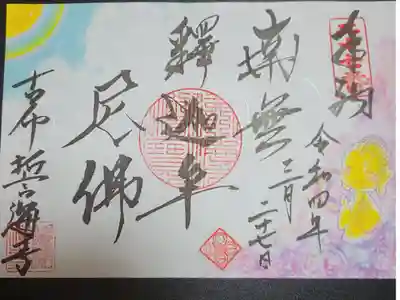 奉拝
令和四年
三月二十七日
南無
釋迦牟
尼佛
古布 誓海寺